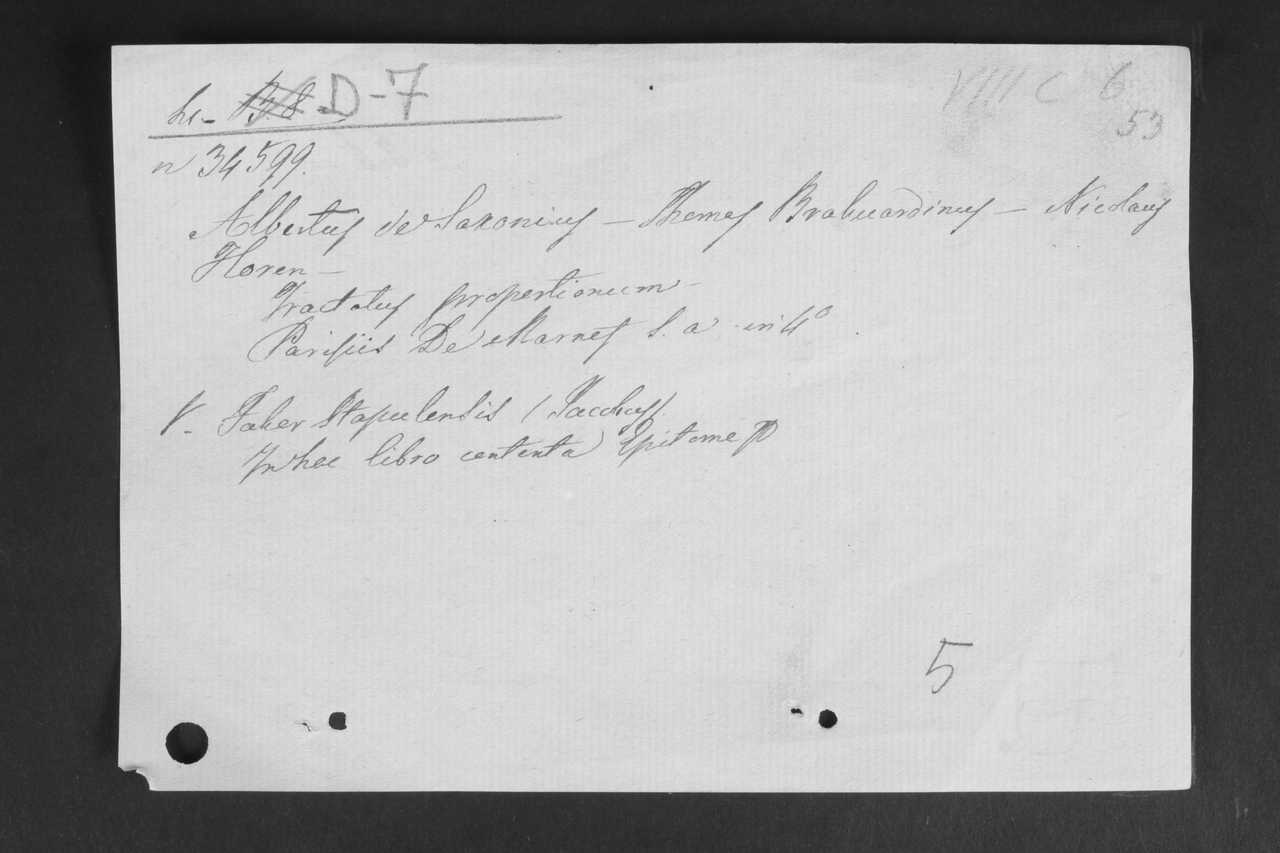 D-7
VIII C 6
53
n 34599.
Albertus de Saxonius – Thomas Braduardinus – Nicolaus
Horen –
Tractatus proportionum –
Parisiis De Marnef S. a in 4º
V. Faber Stapulensis (Jacobus).
In hoc libro contenta Epitome
5